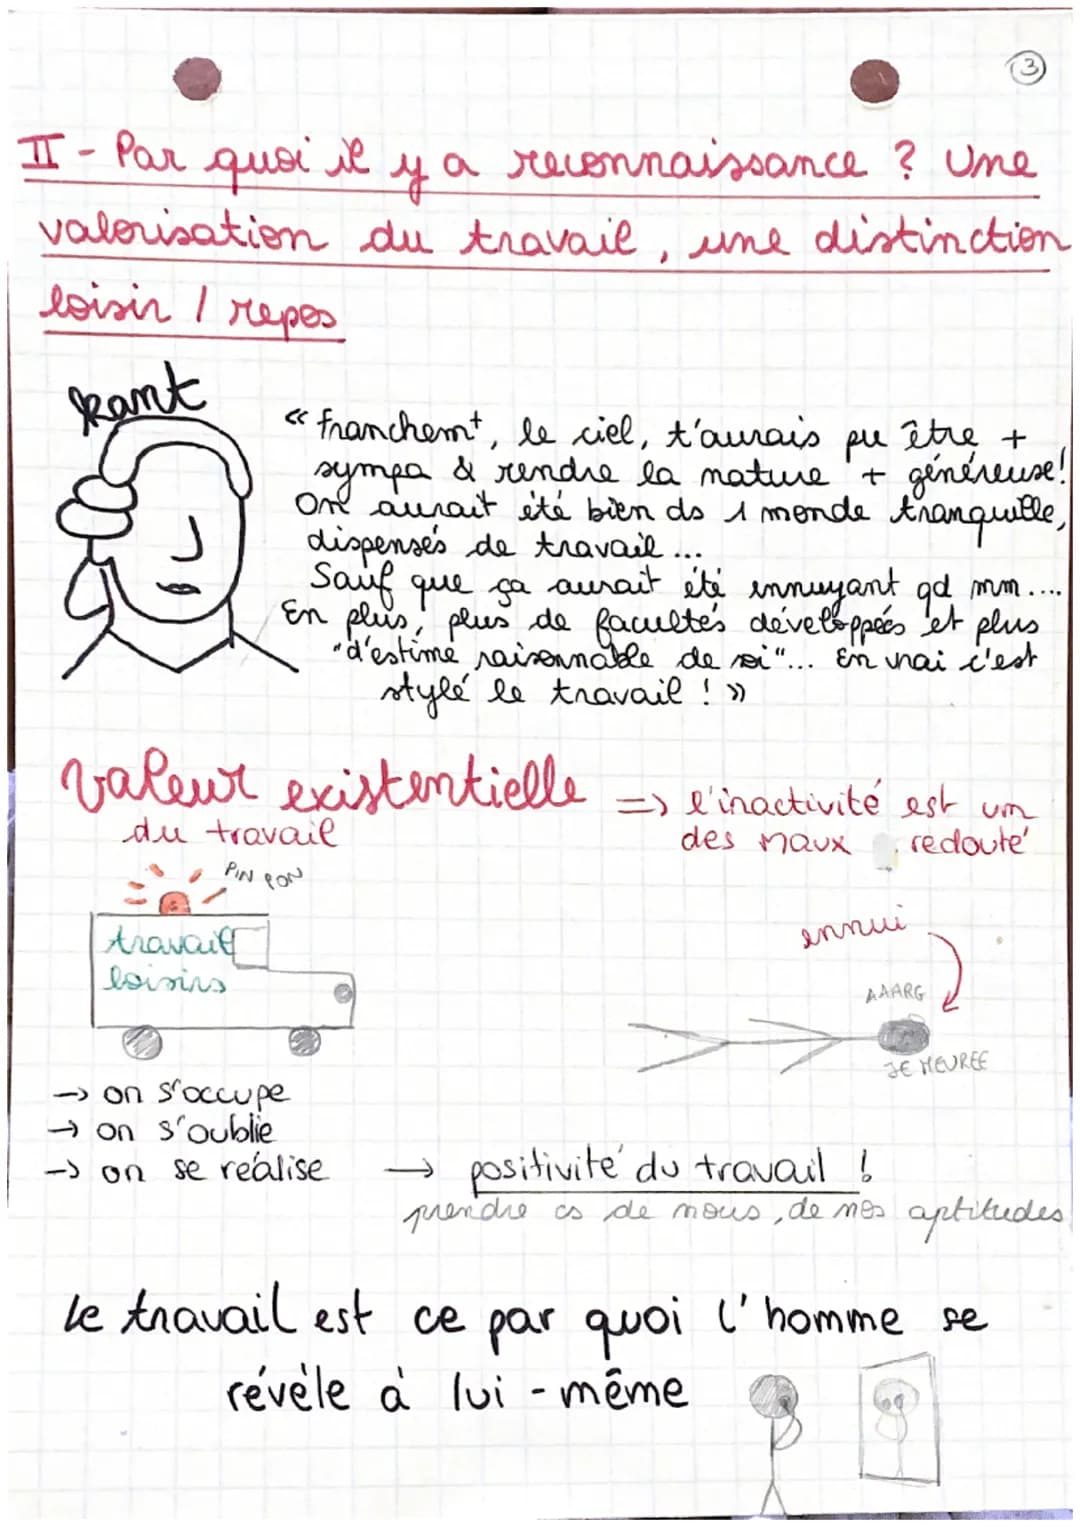 3
II - Par quoi il y a reconnaissance ? Une
valorisation du travail, une distinction
loisir / repos
Kant
« franchemt, le ciel, t'aurais pu être +
sympa & rendre la nature + généreuse!
On aurait été bien ds 1 monde tranquille,
dispensés de travail...
Sauf que ça aurait été ennuyant qd mm....
En plus, plus de facultés développées et plus
"d'estime raisonnable de soi"... En vrai c'est
stylé le travail ! »
Valeur existentielle
du travail
=> l'inactivité est un
des maux redouté
PIN PON
travail
loisirs
ennui
AAARG
JE MEUREE
-> on s'occupe
-> on s'oublie
-> on se réalise
-> positivité du travail !
prendre cs de nous, de nos aptitudes
Le travail est ce par quoi l'homme se
révèle à lui-même